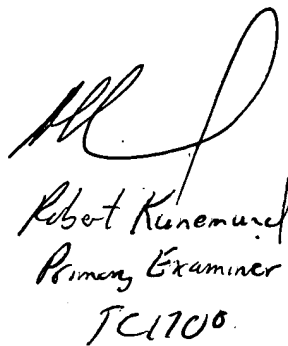 Robert Kunemund
Primary Examiner
TC1700